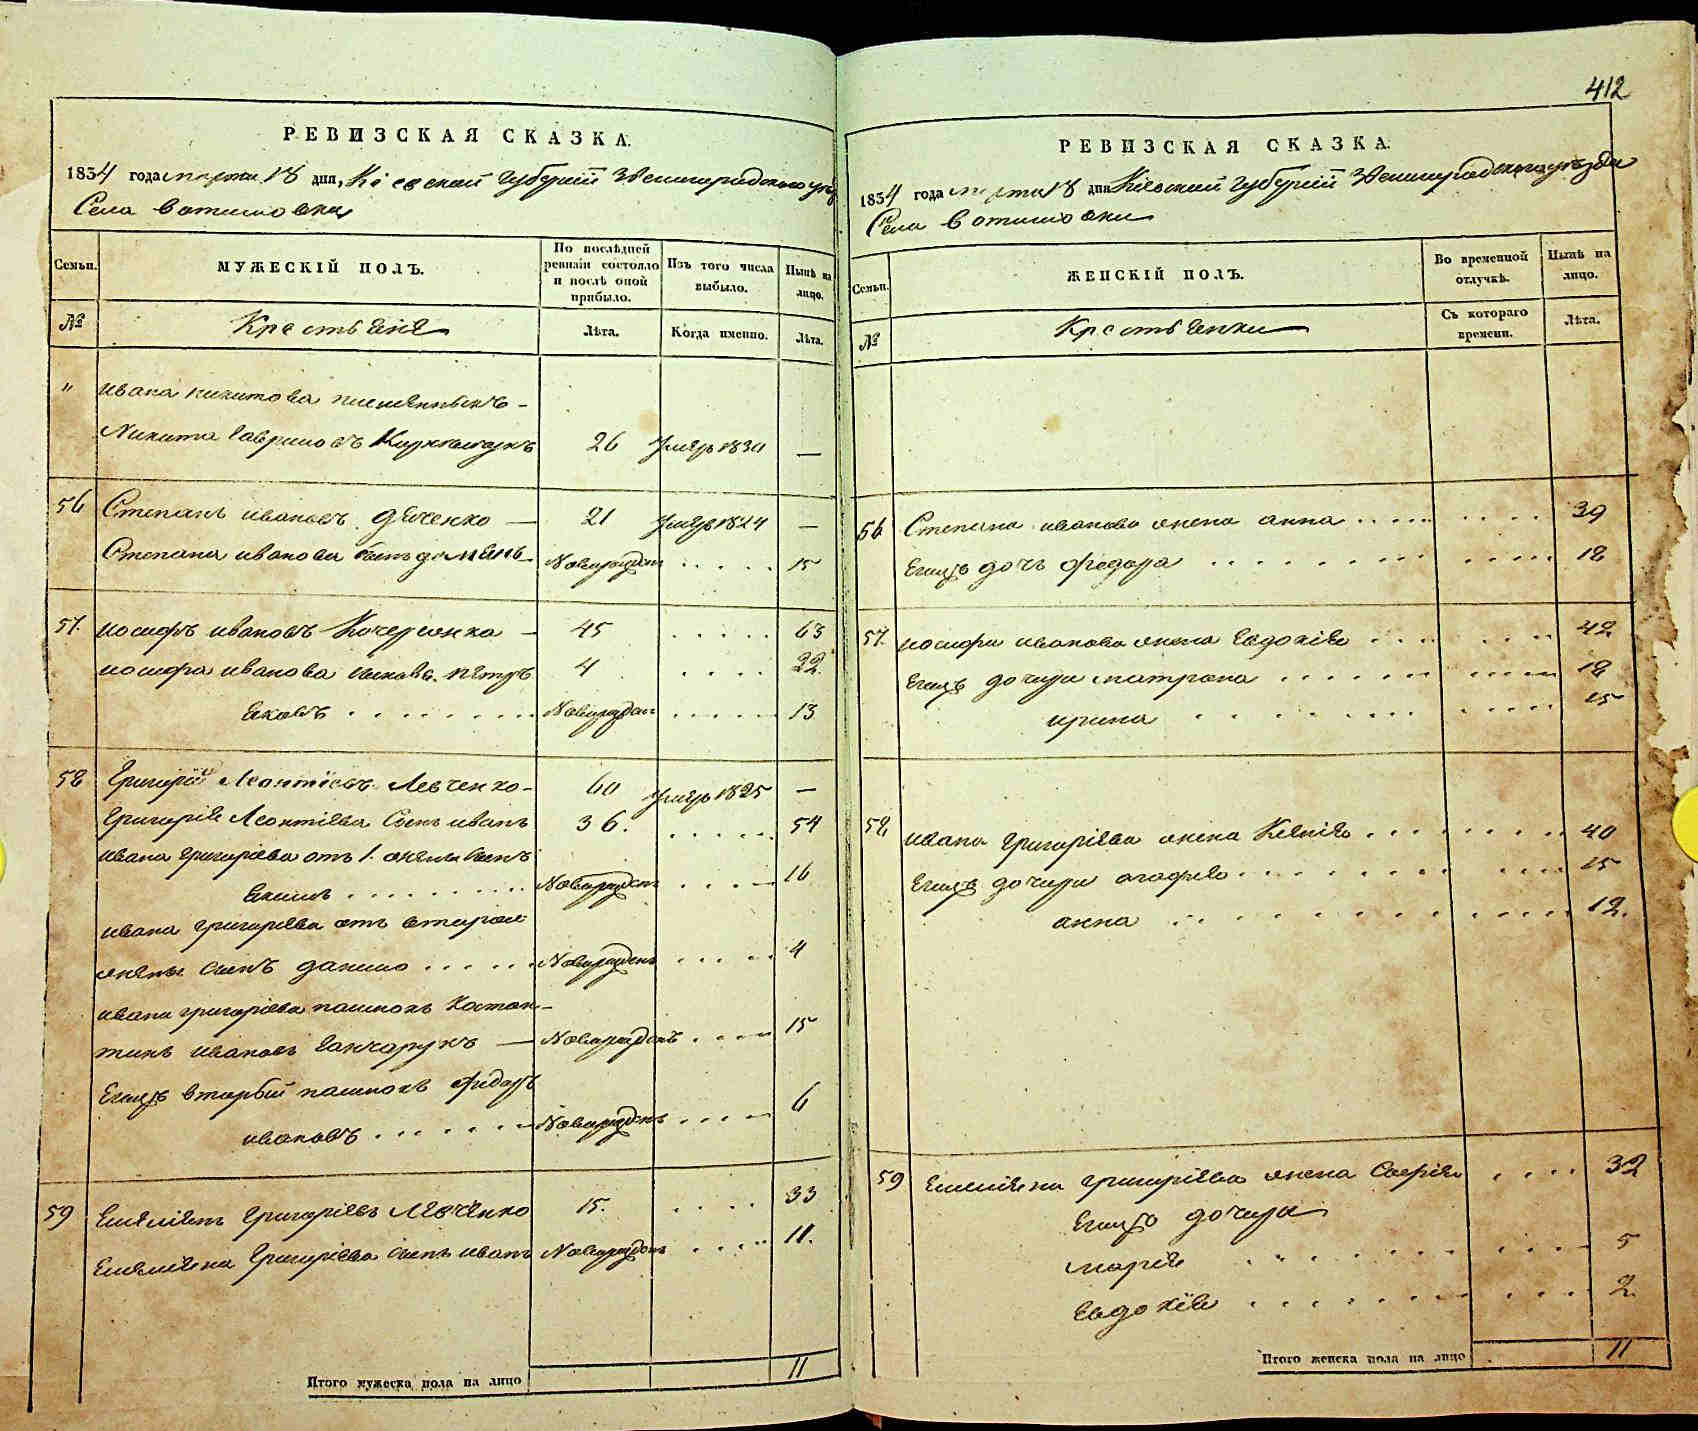 412
РЕВИЗСКАЯ СКАЗКА.
1834 года марта 18 дня, Кіевской губерніи Звенигородского уез
Села Вотылювки
Семьи.
МУЖЕСКІЙ ПОЛЪ.
По послѣдней ревизіи состояло и послѣ оной прибыло.
Изъ того числа выбыло.
Нынѣ на лицо.
№
Крестьяне
Лѣта.
Когда именно.
Лѣта.
" ивана никитова племянникъ -
Никита Гавриловъ 26 умеръ 1830 —
56 Степанъ ивановъ дяченко — 21 умеръ 1824 —
Степана иванова сынъ Новорожден 15
57. иосифъ ивановъ Кочерженко — 45 63
иосифа иванова сыновья. петръ 4 22.
Яковъ Новорожден 13
58 Григорій Леонтіевъ Левченко - 60 умеръ 1825 —
Григорія Леонтіева Сынъ иванъ 36. 54
ивана григоріева отъ 1. жены сынъ
Якимъ Новорожден 16
ивана григоріева отъ второй
жены сынъ данило Новорожденъ 4
ивана григоріева пасинокъ Костан-
тинъ ивановъ Ганчарукъ — Новорожденъ 15
Егожъ вторый пасинокъ Фидоръ
ивановъ Новорожденъ 6
59 Емеліянъ Григоріевъ Левченко 15. 33
Емеліяна Григоріева сынъ иванъ Новорожденъ 11.
Итого мужеска пола на лицо 11
РЕВИЗСКАЯ СКАЗКА.
1834 года марта 18 дня Кіевской губерніи Звенигородского уезда
Села Вотылювки
Семьи.
ЖЕНСКІЙ ПОЛЪ.
Во временной отлучкѣ.
Нынѣ на лицо.
№
Крестьянки
Съ котораго времени.
Лѣта.
56 Степана иванова жена анна 39
Егожъ дочь федора 18
57. иосифа иванова жена Евдокія 42
Егожъ дочери матрона 18
ирина 15
58 ивана григоріева жена Ксенія 40
Егожъ дочери агафія 15
анна 12.
59 Емеліяна григоріева жена Софія 32
Егожъ дочери
марія 5
Евдокія 2.
Итого женска пола на лицо 11